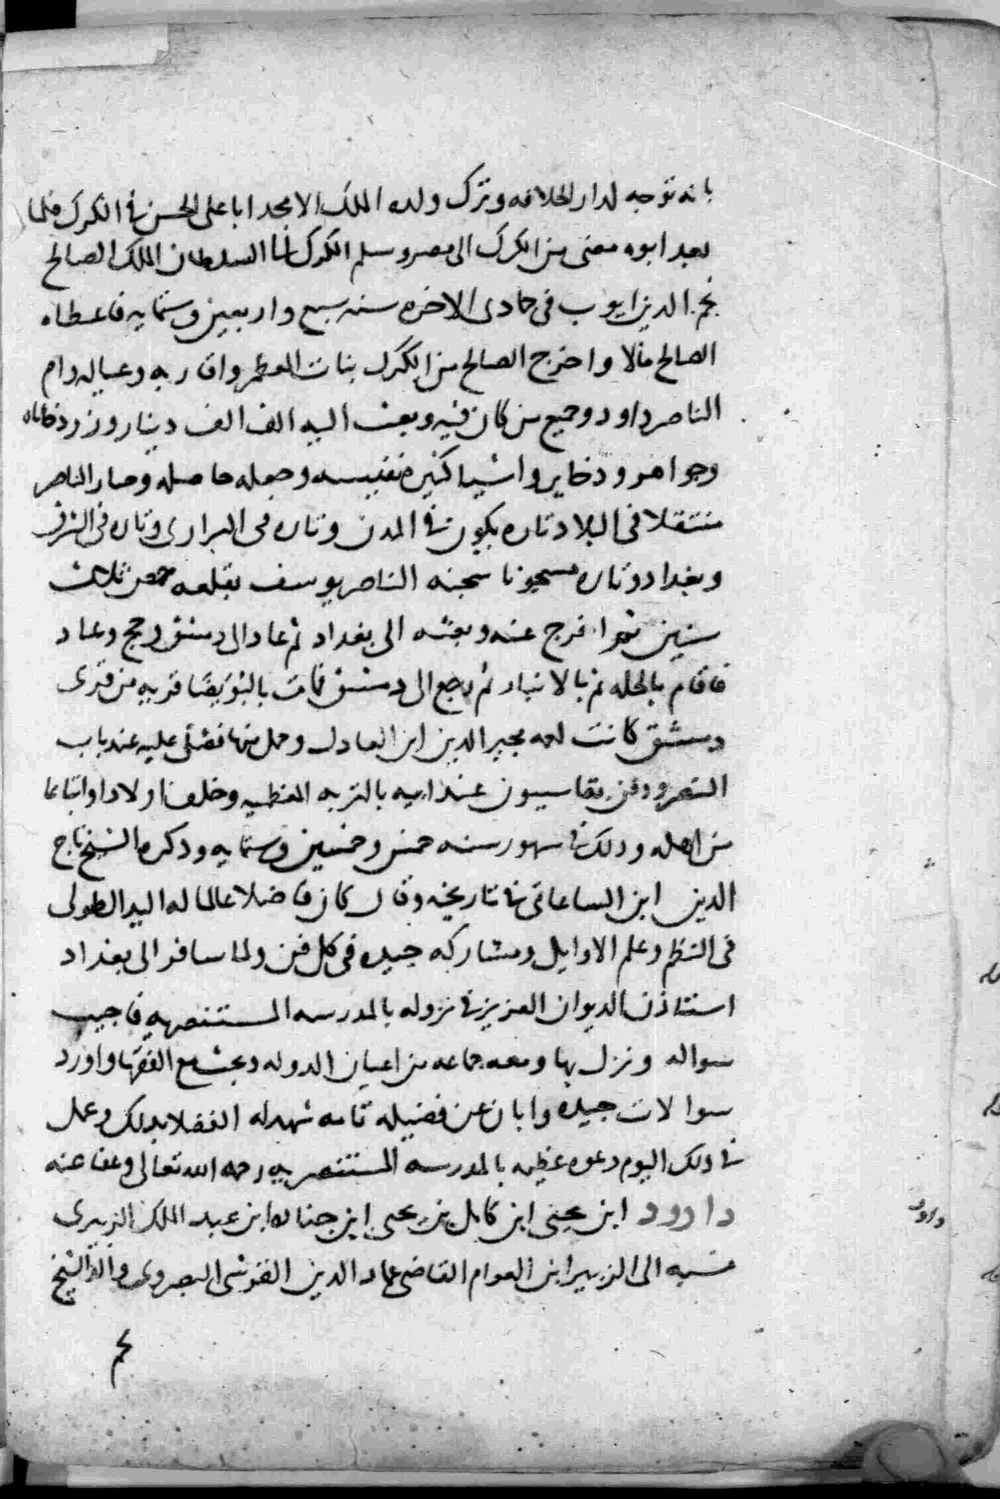 بانه توجه لدار الخلافه وترك ولده الملك الامجد ابا على الحسن فى الكرك فلما
بعد ابوه مضى من الكرك الى مصر وسلم الكرك السلطان الملك الصالح
نجم الدين ايوب فى جمادى الاخره سنه سبع واربعين وستمايه فاعطاه
الصالح مالا واخرج الصالح من الكرك بنات المعظم واقاربه وعياله وام
الناصر داود وجميع من كان فيه وبعث اليه الف الف دينار وزردخاناه
وجواهر وذخاير واشيا كثيره نفيسه وجعله حاصله وصار الناصر
منتقلا فى البلاد تاره يكون فى المدن وتاره فى البرارى وتاره فى الشرق
وبغداد وتاره مسجونا سجنه الناصر يوسف بقلعه حمص ثلاث
سنين ثم افرج عنه وبعثه الى بغداد ثم عاد الى دمشق وحج وعاد
فاقام بالحله ثم بالانبار ثم رجع الى دمشق فمات بالبويضا قريه من قرى
دمشق كانت لعمه مجير الدين ابن العادل وحمل منها فصلى عليه عند باب
النصر ودفن بقاسيون عند ابيه بالتربه المعظميه وخلف اولادا واتباعا
من اهله وذلك فى شهور سنه خمس وخمسين وستمايه وذكره الشيخ تاج
الدين ابن الساعاتى فى تاريخه وقال كان فاضلا عالما له اليد الطولى
فى النظم وعلم الاوايل ومشاركه جيده فى كل فن ولما سافر الى بغداد
استاذن الديوان العزيز فى نزوله بالمدرسه المستنصريه فاجيب
سواله ونزل بها ومعه جماعه من اعيان الدوله وبحث مع الفقها واورد
سوالات جيده وابان عن فضيله تامه شهد له الفضلا بذلك وعمل
فى ذلك اليوم دعوه عظيمه بالمدرسه المستنصريه رحمه الله تعالى وعفا عنه
داوود ابن يحيى ابن كامل بن يحيى ابن جباره ابن عبد الملك الزبيرى
نسبه الى الزبير ابن العوام القاضى عماد الدين القرشى البصروى والد الشيخ
داوود